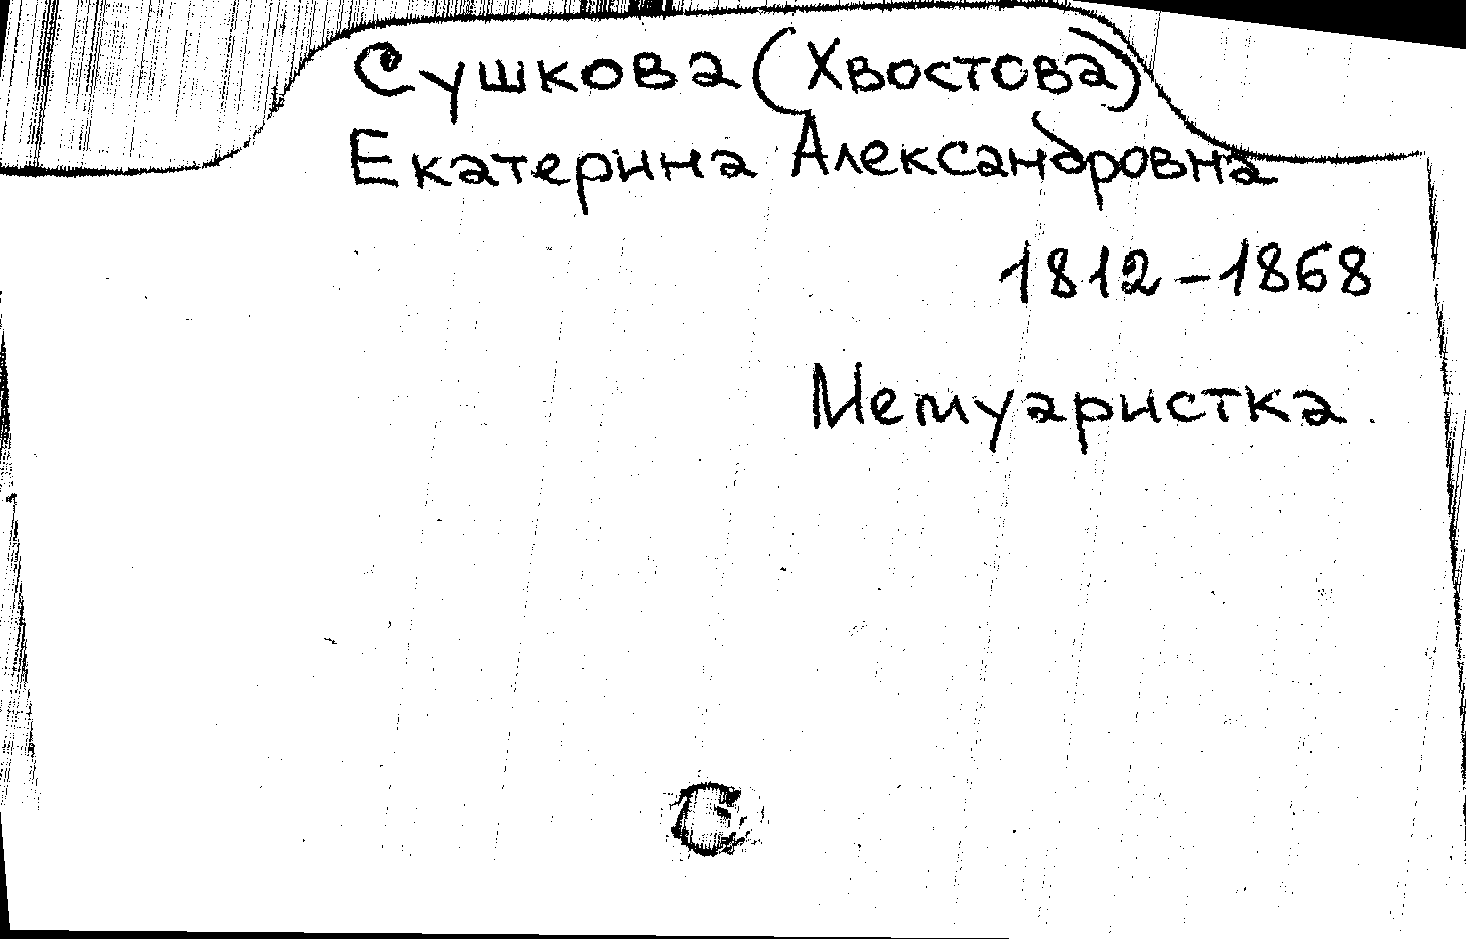 Сушкова (Хвостова)
Екатерина Александровна
1812-1868
Мемуаристка.